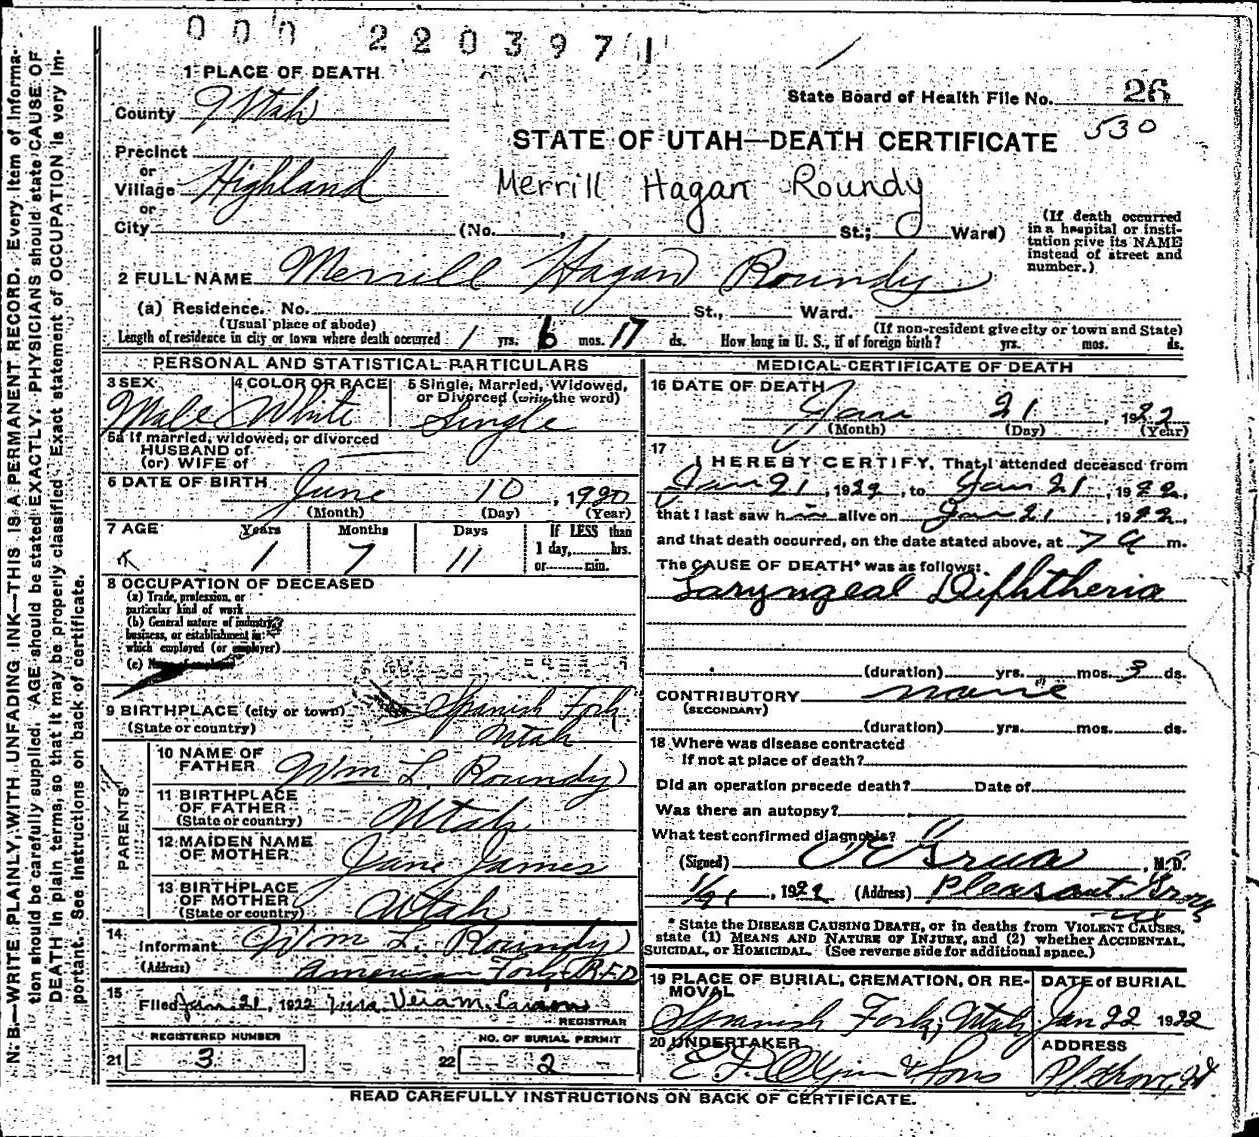 000 2203971
1 PLACE OF DEATH
State Board of Health File No. 26
County Utah
530
STATE OF UTAH—DEATH CERTIFICATE
Precinct
or
Village Highland
Merrill Hagan Roundy
or
City (No. , St.; Ward)
(If death occurred
in a hospital or insti-
tution give its NAME
instead of street and
number.)
2 FULL NAME Merrill Hagan Roundy
(a) Residence. No. St., Ward.
(Usual place of abode) (If non-resident give city or town and State)
Length of residence in city or town where death occurred 1 yrs. 6 mos. 17 ds. How long in U. S., if of foreign birth? yrs. mos. ds.
PERSONAL AND STATISTICAL PARTICULARS
3 SEX 4 COLOR OR RACE 5 Single, Married, Widowed,
or Divorced (write the word)
Male White Single
5a If married, widowed, or divorced
HUSBAND of
(or) WIFE of
6 DATE OF BIRTH June 10, 1920
(Month) (Day) (Year)
7 AGE Years Months Days If LESS than
1 7 11 1 day, hrs.
or min.
8 OCCUPATION OF DECEASED
(a) Trade, profession, or
particular kind of work
(b) General nature of industry,
business, or establishment in
which employed (or employer)
(c) Name of employer
9 BIRTHPLACE (city or town) Spanish Fork
(State or country) Utah
PARENTS
10 NAME OF
FATHER Wm L. Roundy
11 BIRTHPLACE
OF FATHER
(State or country) Utah
12 MAIDEN NAME
OF MOTHER Jane James
13 BIRTHPLACE
OF MOTHER
(State or country) Utah
14
Informant Wm L. Roundy
(Address) American Fork R.F.D
15
Filed Jan. 21, 1922 Vera M. Larson
REGISTRAR
REGISTERED NUMBER NO. OF BURIAL PERMIT
21 3 22 2
MEDICAL CERTIFICATE OF DEATH
16 DATE OF DEATH
Jan 21 1922
(Month) (Day) (Year)
17
I HEREBY CERTIFY, That I attended deceased from
Jan 21, 1922, to Jan 21, 1922,
that I last saw him alive on Jan 21, 1922,
and that death occurred, on the date stated above, at 7 a m.
The CAUSE OF DEATH* was as follows:
Laryngeal Diphtheria
(duration) yrs. mos. 3 ds.
CONTRIBUTORY none
(SECONDARY)
(duration) yrs. mos. ds.
18 Where was disease contracted
if not at place of death?
Did an operation precede death? Date of
Was there an autopsy?
What test confirmed diagnosis?
(Signed) O E Grua, M.D.
1/21, 1922 (Address) Pleasant Grove
* State the DISEASE CAUSING DEATH, or in deaths from VIOLENT CAUSES,
state (1) MEANS AND NATURE OF INJURY, and (2) whether ACCIDENTAL,
SUICIDAL, or HOMICIDAL. (See reverse side for additional space.)
19 PLACE OF BURIAL, CREMATION, OR RE-
MOVAL
DATE of BURIAL
Spanish Fork, Utah Jan 22 1922
20 UNDERTAKER ADDRESS
& Sons Pl Grove, Ut
READ CAREFULLY INSTRUCTIONS ON BACK OF CERTIFICATE.
N. B.—WRITE PLAINLY, WITH UNFADING INK—THIS IS A PERMANENT RECORD. Every item of informa-
tion should be carefully supplied. AGE should be stated EXACTLY. PHYSICIANS should state CAUSE OF
DEATH in plain terms, so that it may be properly classified. Exact statement of OCCUPATION is very im-
portant. See instructions on back of certificate.